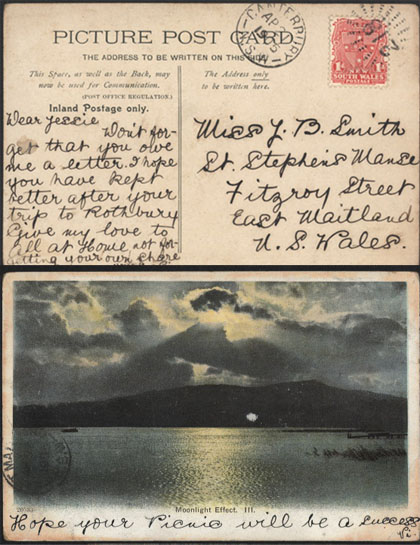 PICTURE POST CARD.
THE ADDRESS TO BE WRITTEN ON THIS SIDE
This Space, as well as the Back, may
now be used for Communication.
(POST OFFICE REGULATION.)
Inland Postage only.
The Address only
to be written here.
CANTERBURY
AP
5
N.S.W
NEW SOUTH WALES
Dear Jessie
Don't for-
get that you owe
me a letter. I hope
you have kept
better after your
trip to Rothbury
Give my love to
all at Home not for-
getting your own share
Miss J. B. Smith
St. Stephens Manse
Fitzroy Street
East Maitland
N. S. Wales.
MA
Moonlight Effect. III.
Hope your Picnic will be a success